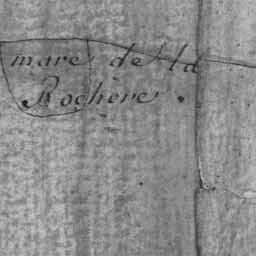 mare de la
Rochere